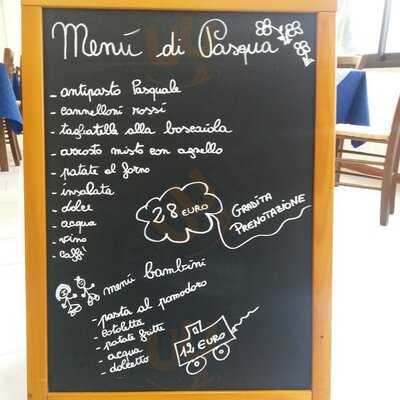 Menú di Pasqua
- antipasto Pasquale
- cannelloni rossi
- tagliatelle alla boscaiola
- arrosto misto con agnello
- patate al forno
- insalata
- dolce
- acqua
- vino
- caffè
28 EURO
GRADITA
PRENOTAZIONE
menú bambini
- pasta al pomodoro
- cotoletta
- patate fritte
- acqua
- dolcetto
12 EURO